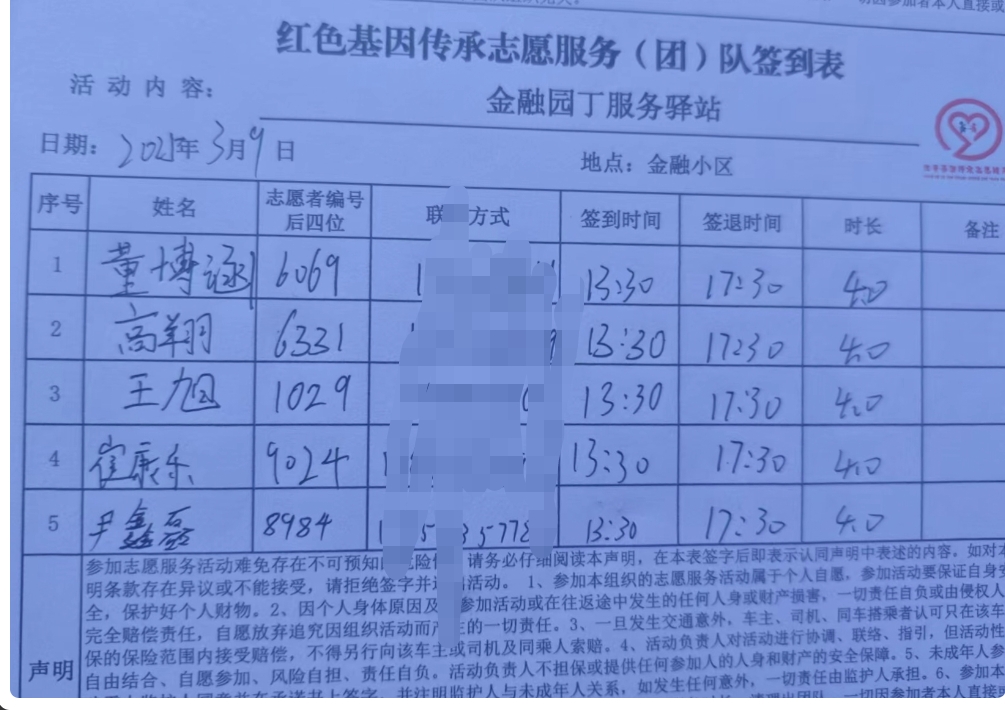 红色基因传承志愿服务（团）队签到表
活动内容：
金融园丁服务驿站
日期：2025年3月9日
地点：金融小区
序号 姓名 志愿者编号后四位 联 方式 签到时间 签退时间 时长 备注
1 董博涵 6069 13:30 17:30 4.0
2 高翔 6331 13:30 17:30 4.0
3 王旭 1029 13:30 17:30 4.0
4 崔康乐 9024 13:30 17:30 4.0
5 尹鑫磊 8984 13:30 17:30 4.0
声明
参加志愿服务活动难免存在不可预知 险 请务必仔细阅读本声明，在本表签字后即表示认同声明中表述的内容。如对本
明条款存在异议或不能接受，请拒绝签字并 活动。 1、参加本组织的志愿服务活动属于个人自愿，参加活动要保证自身安
全，保护好个人财物。2、因个人身体原因及 参加活动或在往返途中发生的任何人身或财产损害，一切责任自负或由侵权人
完全赔偿责任，自愿放弃追究因组织活动而产生的一切责任。3、一旦发生交通意外，车主、司机、同车搭乘者认可只在该车
保的保险范围内接受赔偿，不得另行向该车主或司机及同乘人索赔。4、活动负责人对活动进行协调、联络、指引，但活动性
自由结合、自愿参加、风险自担、责任自负。活动负责人不担保或提供任何参加人的人身和财产的安全保障。5、未成年人参
并注明监护人与未成年人关系，如发生任何意外，一切责任由监护人承担。6、参加本